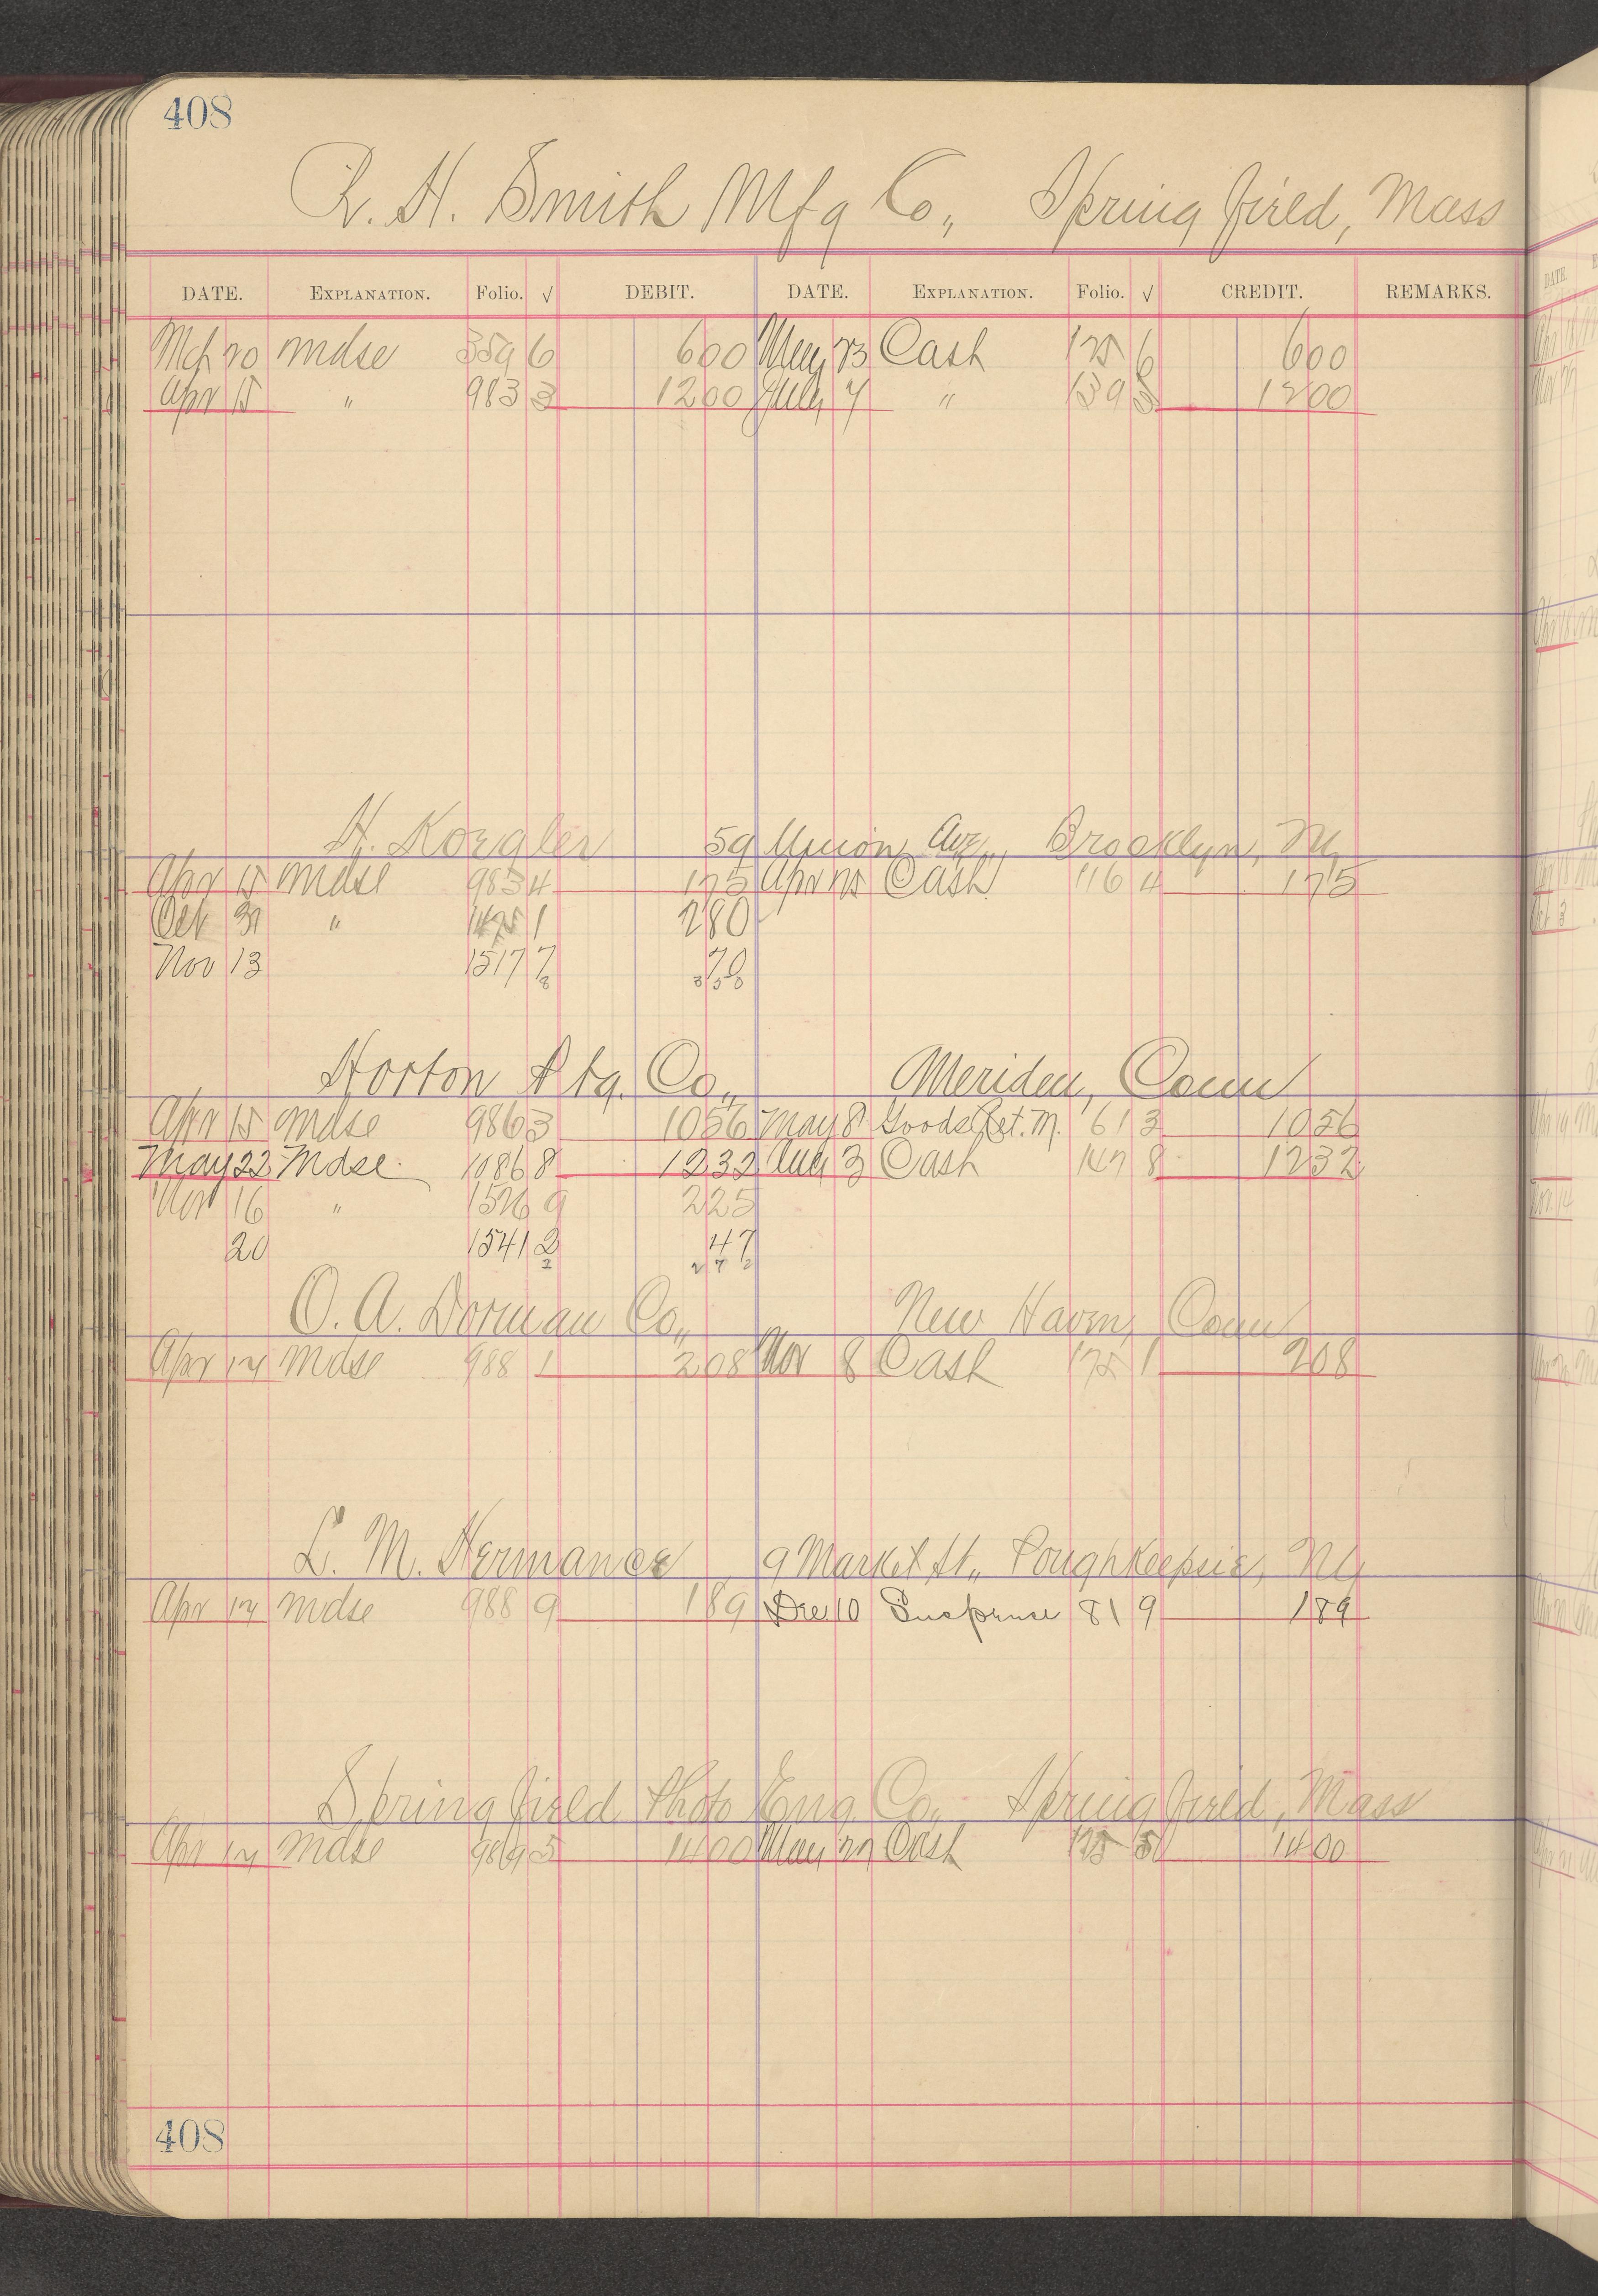 408
R. H. Smith Mfg Co., Springfield, Mass
DATE. EXPLANATION. Folio. √ DEBIT. DATE. EXPLANATION. Folio. √ CREDIT. REMARKS.
Mch 20 Mdse 6 600 May 23 Cash 125 6 600
Apr 15 " 983 3 1200 July 7 " 139 3 1200
H. Koegler 59 Union Ave., Brooklyn, NY
Apr 15 Mdse 983 4 175 Apr 25 Cash 116 4 175
Oct 31 " 1 280
Nov 13 1517 7 78
Horton Ptg. Co., Meriden, Conn
Apr 15 Mdse 986 3 1056 May 8 Goods Ret. M. 61 3 1056
May 22 Mdse. 1086 8 1232 Aug 3 Cash 147 8 1232
Nov 16 " 1526 9 225
20 1541 2 47
O. A. Dorman Co., New Haven, Conn
Apr 17 Mdse 988 1 208 Nov 8 Cash 175 1 208
L. M. Hermance 9 Market St., Poughkeepsie, NY
Apr 17 Mdse 988 9 189 Dec 10 Suspense 81 9 189
Springfield Photo Eng Co. Springfield, Mass
Apr 17 Mdse 989 5 1400 May 22 Cash 125 5 1400
408